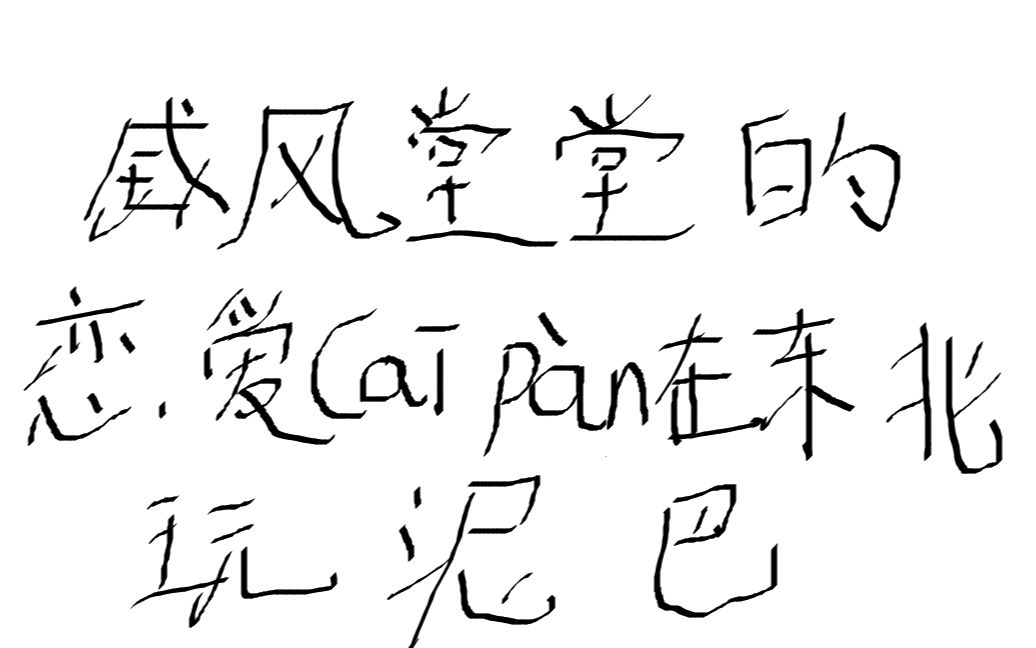 威风堂堂的
恋爱Cāi pàn在东北
玩泥巴